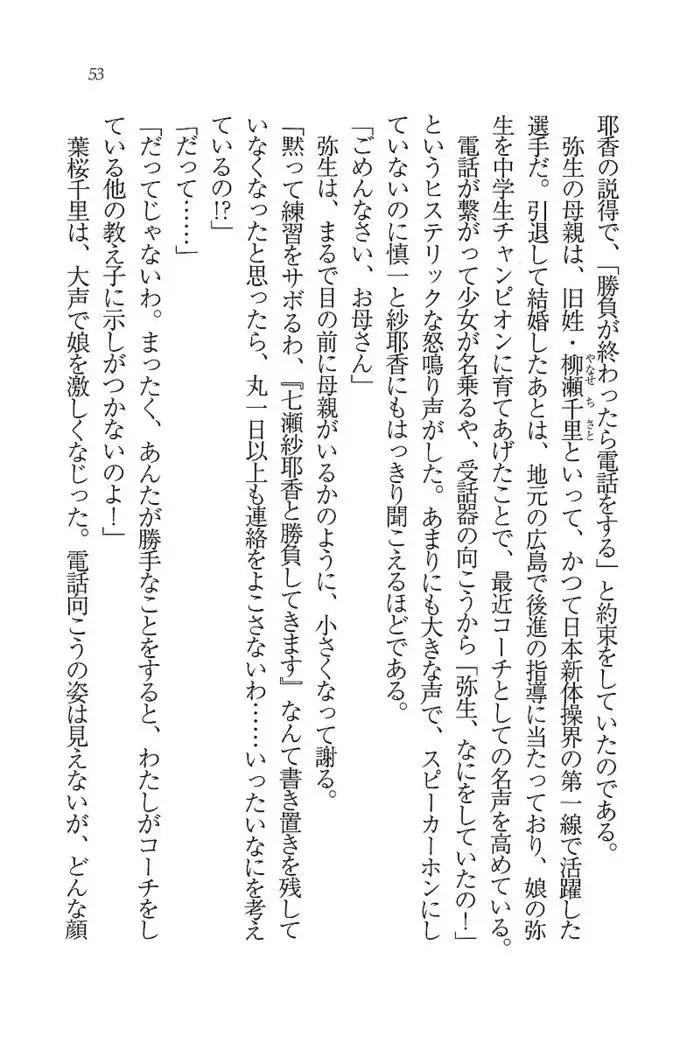 53
耶香の説得で、「勝負が終わったら電話をする」と約束をしていたのである。
弥生の母親は、旧姓・柳瀬千里といって、かつて日本新体操界の第一線で活躍した
やなせ ち さと
選手だ。引退して結婚したあとは、地元の広島で後進の指導に当たっており、娘の弥
生を中学生チャンピオンに育てあげたことで、最近コーチとしての名声を高めている。
電話が繋がって少女が名乗るや、受話器の向こうから「弥生、なにをしていたの！」
というヒステリックな怒鳴り声がした。あまりにも大きな声で、スピーカーホンにし
ていないのに慎一と紗耶香にもはっきり聞こえるほどである。
「ごめんなさい、お母さん」
弥生は、まるで目の前に母親がいるかのように、小さくなって謝る。
「黙って練習をサボるわ、『七瀬紗耶香と勝負してきます』なんて書き置きを残して
いなくなったと思ったら、丸一日以上も連絡をよこさないわ……いったいなにを考え
ているの!?」
「だって……」
「だってじゃないわ。まったく、あんたが勝手なことをすると、わたしがコーチをし
ている他の教え子に示しがつかないのよ！」
葉桜千里は、大声で娘を激しくなじった。電話向こうの姿は見えないが、どんな顔